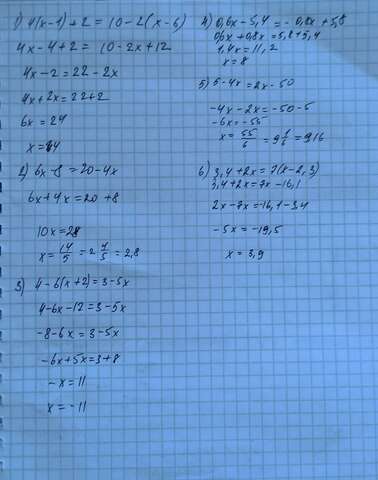 1) 4(x-1)+2 = 10-2(x-6)
4x-4+2 = 10-2x+12
4x-2=22-2x
4x+2x=22+2
6x=24
x=4
2) 6x-8=20-4x
6x+4x=20+8
10x=28
x=14/5=2 4/5=2,8
3) 4-6(x+2)=3-5x
4-6x-12=3-5x
-8-6x=3-5x
-6x+5x=3+8
-x=11
x=-11
4) 0,6x-5,4=-0,8x+5,8
0,6x+0,8x=5,8+5,4
1,4x=11,2
x=8
5) 5-4x=2x-50
-4x-2x=-50-5
-6x=-55
x=55/6=9 1/6=9,16
6) 3,4+2x=7(x-2,3)
3,4+2x=7x-16,1
2x-7x=-16,1-3,4
-5x=-19,5
x=3,9